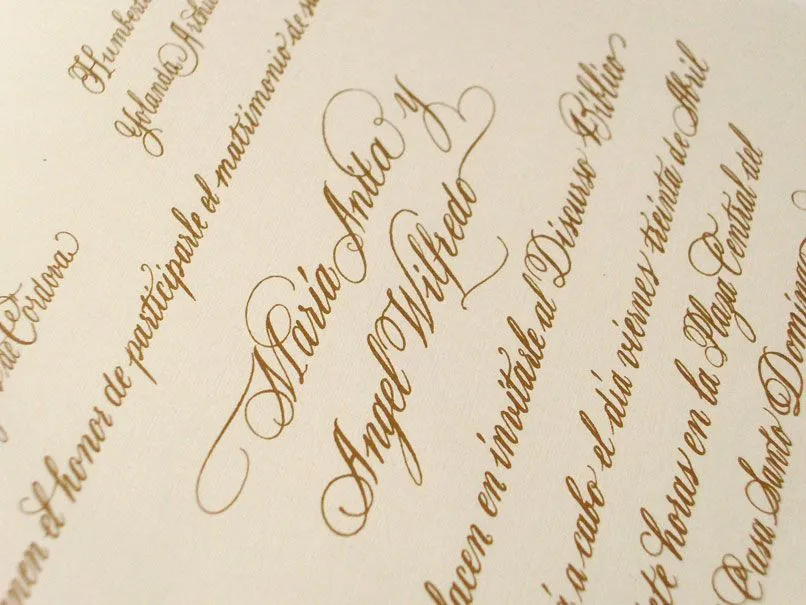 Humberto
Yolanda Arthu
de Cordova
el honor de participarle el matrimonio de su
María Anita y
Angel Wilfredo
en invitarle al Discurso Bíblico
a cabo el día viernes treinta de Abril
horas en la Plaza Central del
Casa Santo Domingo